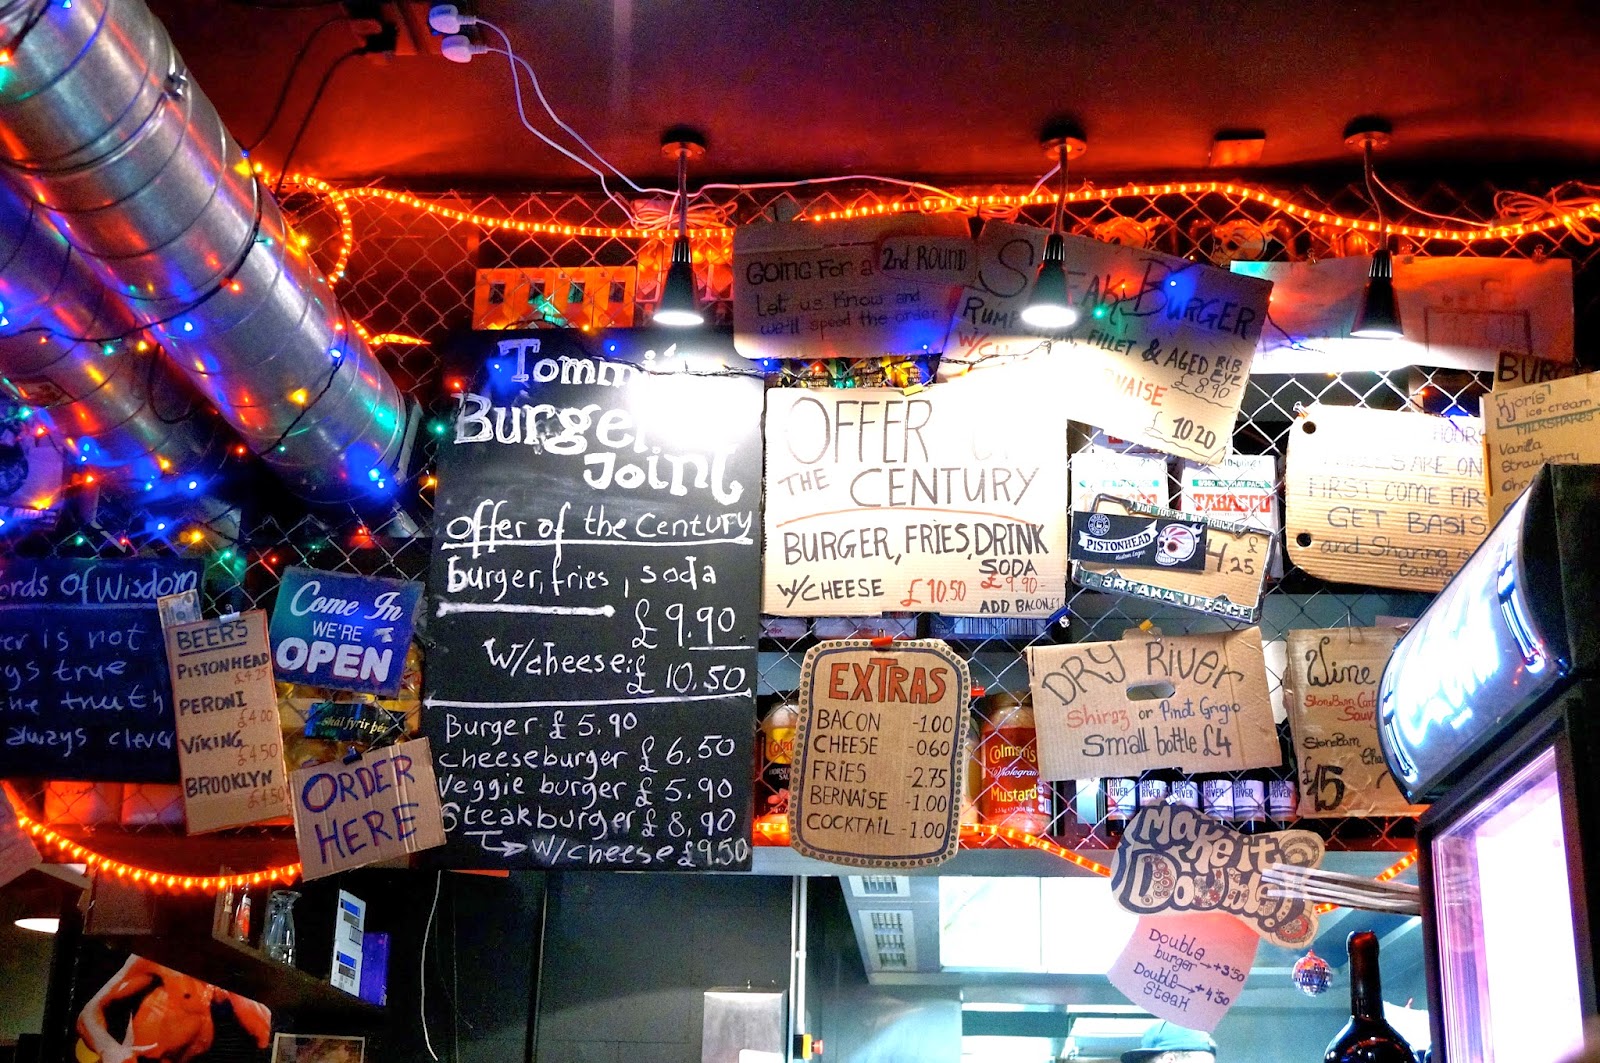 Burger
Joint
offer of the Century
burger, fries, soda
£9.90
w/cheese: £10.50
Burger £5.90
cheeseburger £6.50
Veggie burger £5.90
Steakburger £8.90
w/cheese £9.50
GOING FOR a 2nd ROUND
Let us know and
we'll speed the order
STEAK BURGER
FILLET & AGED RIB
EYE
£8.90
£10.20
OFFER
THE CENTURY
BURGER, FRIES, DRINK
SODA
W/CHEESE £10.50 £9.90-
ADD BACON £1
TABASCO
PISTONHEAD
4.25
£
BREAKA U FACE
HOURS
ARE ON
FIRST COME FIR
GET BASIS
and Sharing is
Caring
BURG
ice-cream
MILKSHAKES
Vanilla
Strawberry
of Wisdom
is not
ys true
the truth
always clever
BEERS
PISTONHEAD
£4.25
PERONI
£4.00
VIKING
£4.50
BROOKLYN
£4.50
Come In
WE'RE
OPEN
skál fyrir þér
ORDER
HERE
EXTRAS
BACON -1.00
CHEESE -0.60
FRIES -2.75
BERNAISE -1.00
COCKTAIL -1.00
Colman's
Wholegrain
Mustard
DRY RIVER
Shiraz or Pinot Grigio
Small bottle £4
Wine
£15
DRY
RIVER
Make it
Double!!
Double
burger → +3'50
Double → +4'50
Steak